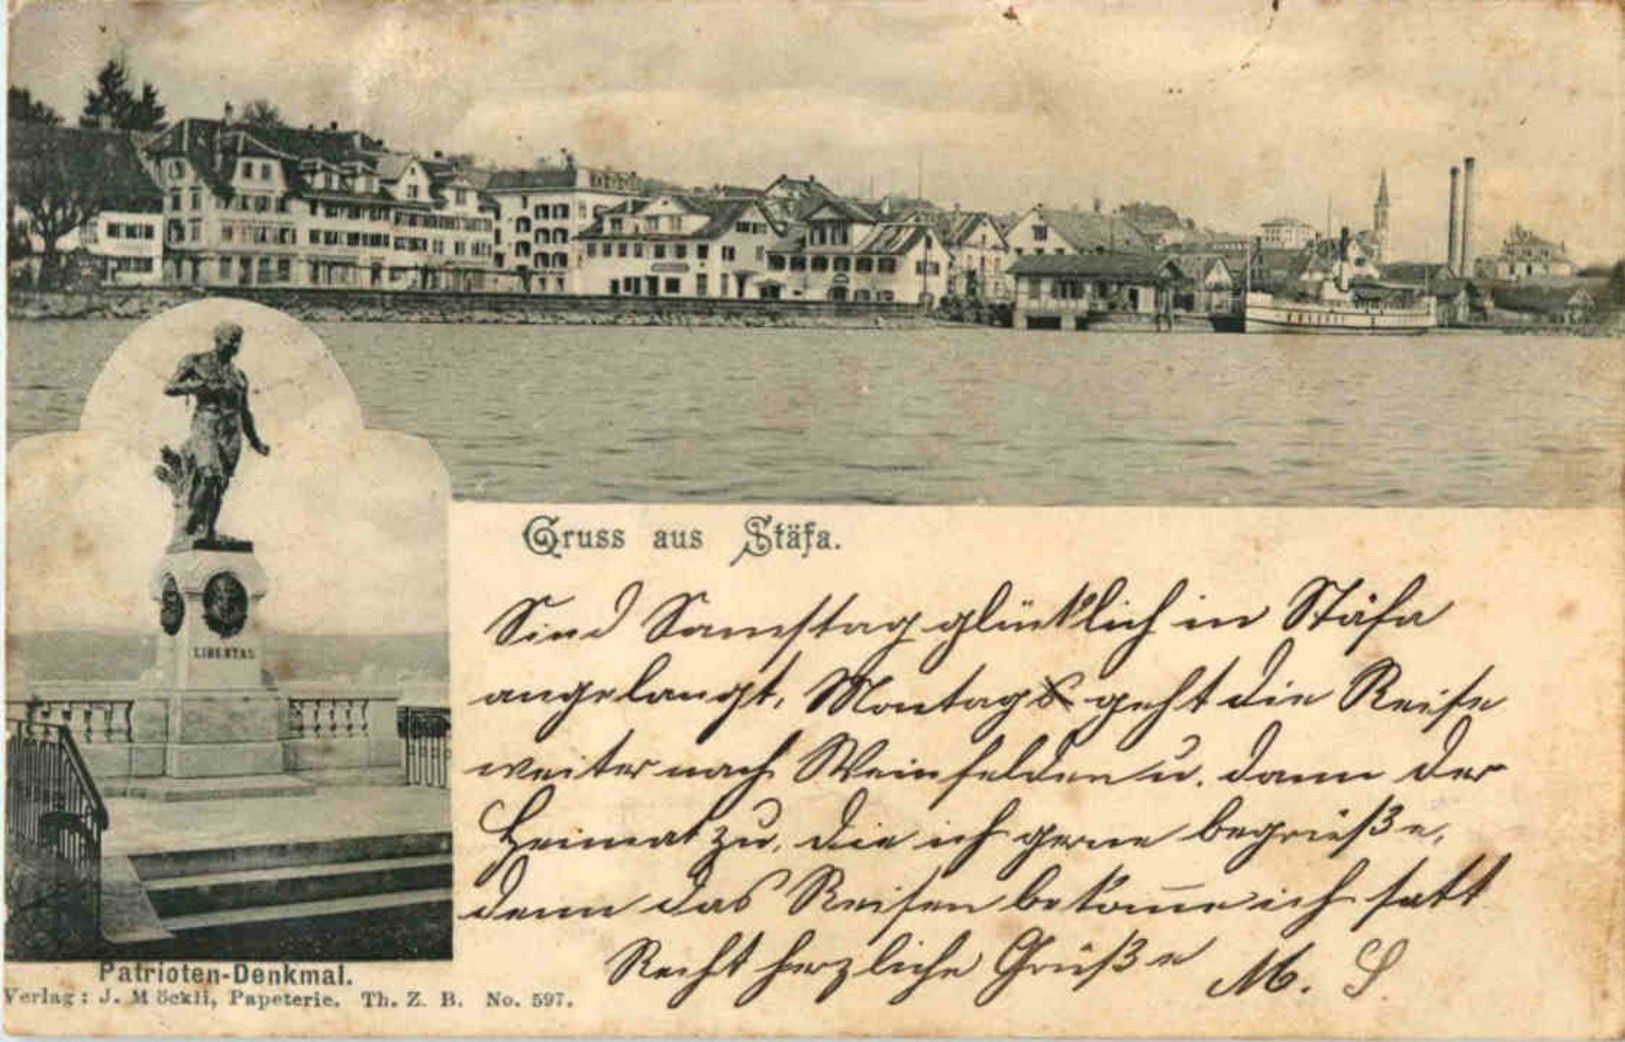 LIBERTAS
Gruss aus Stäfa.
Sind Samstag glücklich in Stäfa
angelangt, Montag geht die Reise
weiter nach Weinfelden u. dann der
Heimat zu, die ich gerne begrüße,
denn das Reisen bekom̅e ich satt
Recht herzliche Grüße M. S.
Patrioten-Denkmal.
Verlag: J. Möckli, Papeterie. Th. Z. B. No. 597.